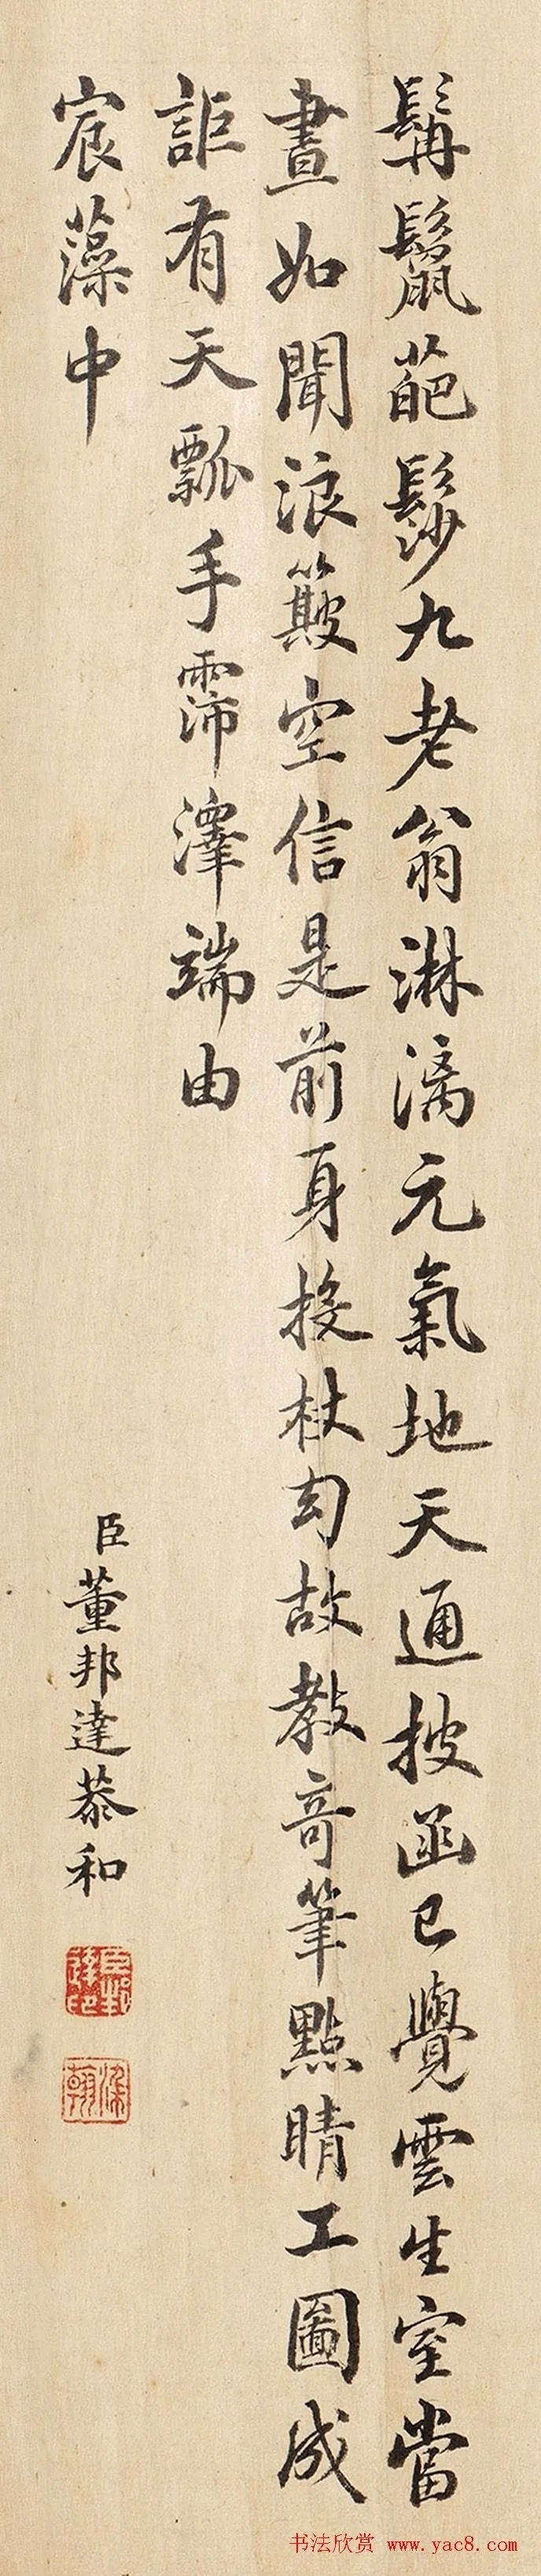 髯鬣葩髿九老翁淋漓元氣地天通披函已覺雲生室當
晝如聞浪簸空信是前身投杖幻故教奇筆點睛工圖成
詎有天瓢手霈澤端由
宸藻中
臣董邦達恭和
染翰
书法欣赏 www.yac8.com